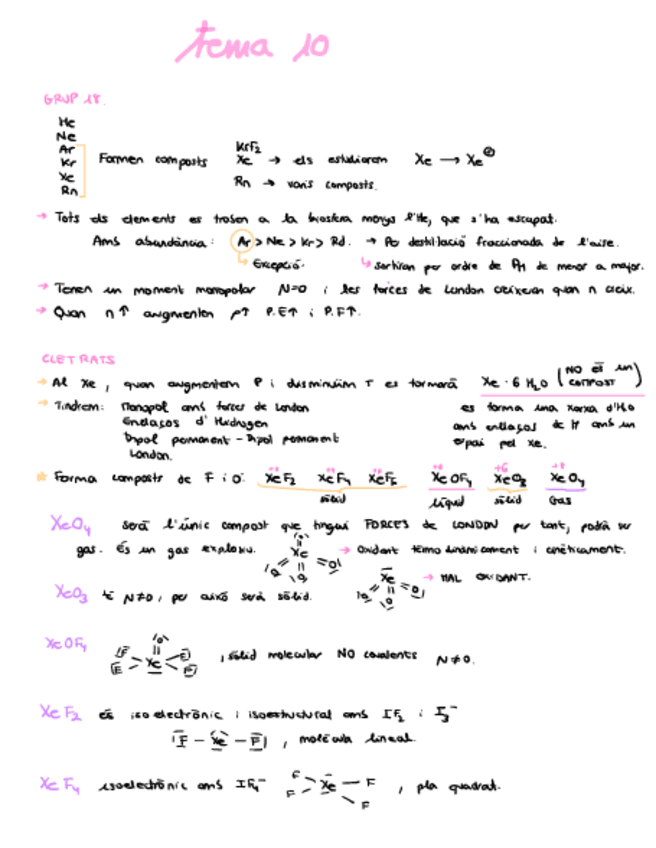 tema 10
GRUP 18.
He
Ne
Ar
Kr
Xe
Rn
Formen composts
KrF₂
Xe → els estudiarem Xe → Xe⊕
Rn → varis composts.
→ Tots els elements es troben a la biosfera menys l'He, que s'ha escapat.
Amb abundància: Ar > Ne > Kr > Rd. → Per destil·lació fraccionada de l'aire.
↳ Excepció. ↳ sortiran per ordre de PM de menor a major.
→ Tenen un moment monopolar N=0 i les forces de London creixeran quan n creix.
→ Quan n↑ augmenten P↑ P.E↑ i P.F↑.
CLETRATS
→ Al Xe, quan augmentem P i disminuïm T es formarà Xe · 6 H₂O (NO és un compost)
→ Tindrem: Monopol amb forces de London
Enllaços d'Hidrogen
Dipol permanent - Dipol permanent
London.
es forma una xarxa d'H₂O
amb enllaços de H amb un
espai pel Xe.
Forma composts de F i O: XeF₂ XeF₄ XeF₆ XeOF₄ XeO₃ XeO₄
+2 +4 +6 +6 +6 +8
sòlid líquid sòlid Gas
XeO₄ serà l'únic compost que tingui FORCES de LONDON per tant, podrà ser
gas. És un gas explosiu. → Oxidant termodinàmicament i cinèticament.
XeO₃ té N≠0, per això serà sòlid. → MAL OXIDANT.
XeOF₄ , sòlid molecular NO covalents N≠0.
XeF₂ és isoelectrònic i isoestructural amb IF₂ i I₃⁻
|F - Xe - F| , molècula lineal.
XeF₄ isoelectrònic amb IF₄⁻ , pla quadrat.